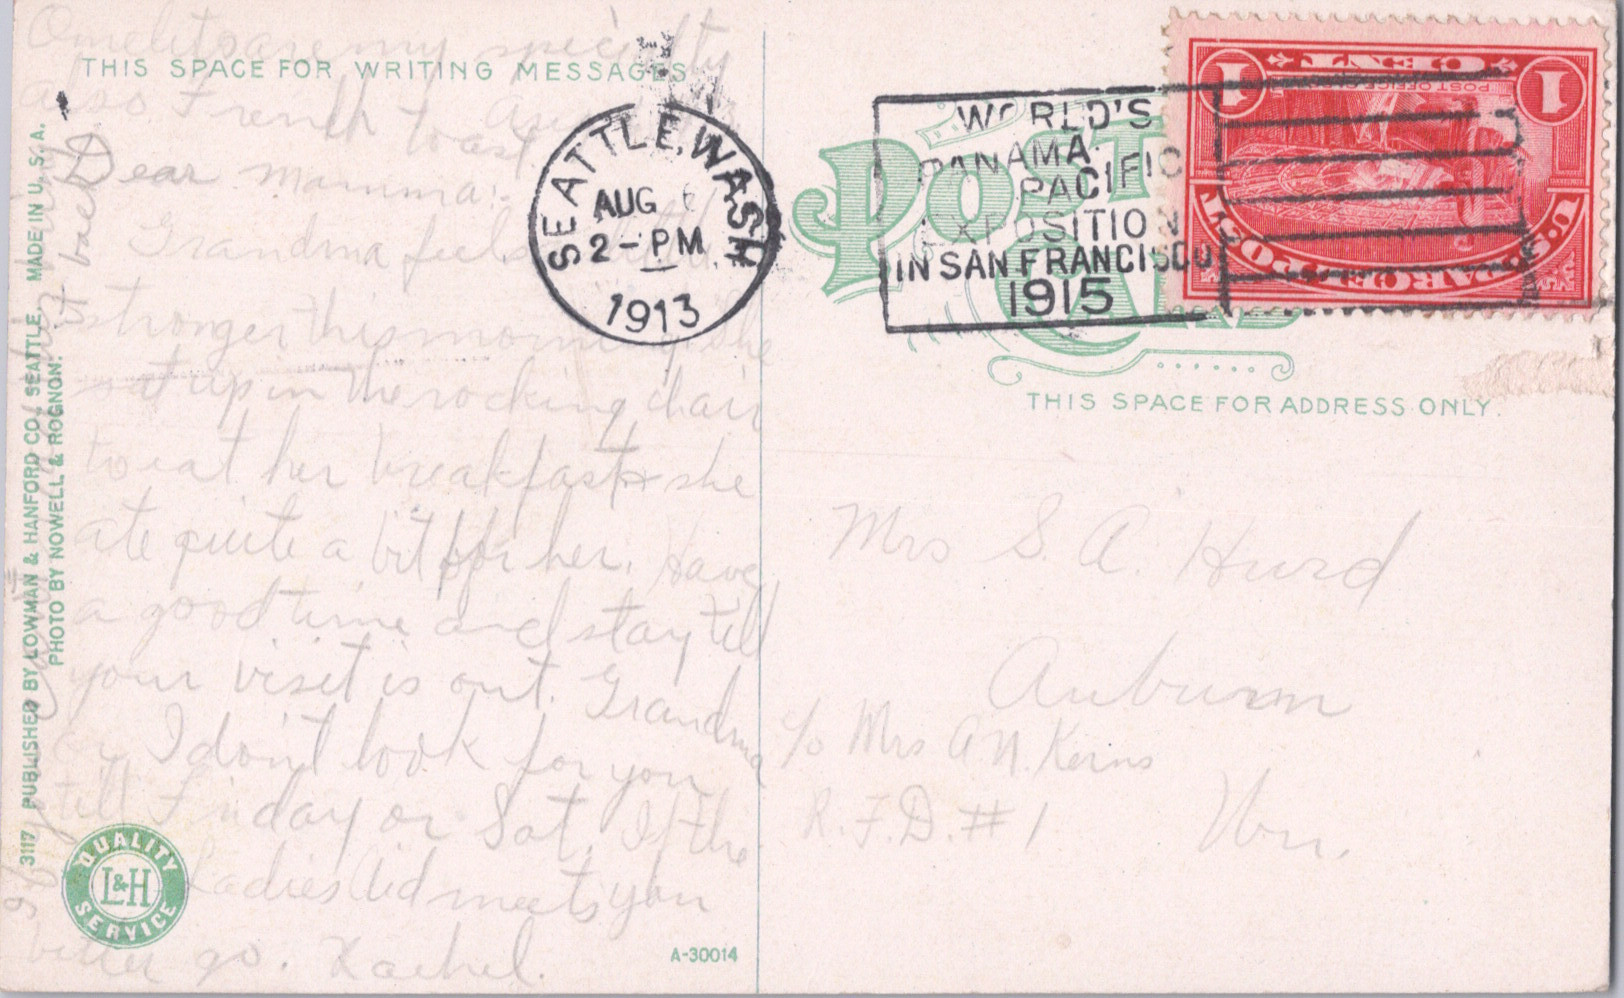 Omelets are my specialty
THIS SPACE FOR WRITING MESSAGES
also French Toast
Dear Mamma:-
Grandma feels
stronger this morning. She
sat up in the rocking chair
to eat her breakfast & she
ate quite a bit for her. Have
a good time and stay till
your visit is out. Grandma
I don't look for you
till Friday or Sat. If the
Ladies Aid meets you
better go. Rachel.
3117 PUBLISHED BY LOWMAN & HANFORD CO., SEATTLE, MADE IN U.S.A.
PHOTO BY NOWELL & ROGNON.
QUALITY
L&H
SERVICE
A-30014
SEATTLE, WASH
AUG 6
2-PM
1913
WORLD'S
PANAMA
PACIFIC
EXPOSITION
IN SAN FRANCISCO
1915
POST
CARD
1 CENT 1
POST OFFICE CLERK
U.S. PARCEL POST
THIS SPACE FOR ADDRESS ONLY.
Mrs S. A. Hurd
Auburn
c/o Mrs A. N. Kerns
R.F.D. #1 Wn.